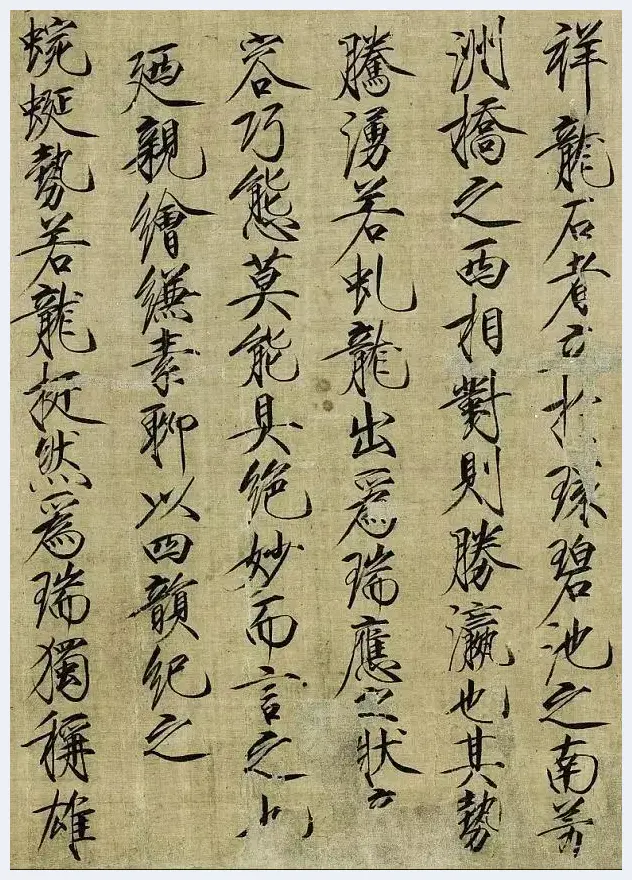 祥龍石者立於環碧池之南芳
洲橋之西相對則勝瀛也其勢
騰湧若虬龍出爲瑞應之狀
容巧態莫能具絶妙而言之
廼親繪縑素聊以四韻紀之
蜿蜒勢若龍挺然爲瑞獨稱雄